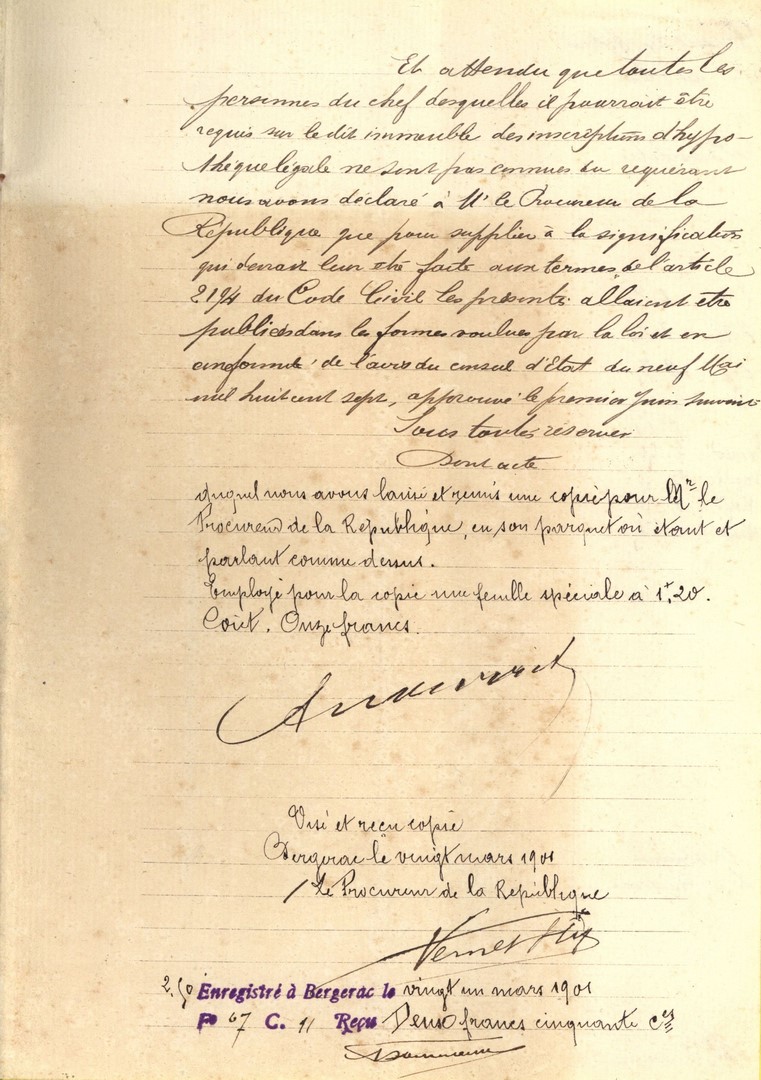 Et attendu que toutes les
personnes du chef desquelles il pourrait être
requis sur le dit immeuble des inscriptions d'hypo-
thèque légale ne sont pas connues du requérant
nous avons déclaré à Mr le Procureur de la
République que pour suppléer à la signification
qui devait leur être faite aux termes de l'article
2194 du Code Civil les présentes allaient être
publiées dans les formes voulues par la loi et en
conformité de l'avis du conseil d'Etat du neuf Mai
mil huit cent sept, approuvé le premier Juin suivant
Sous toutes réserves
Dont acte
duquel nous avons laissé et remis une copie pour Mr le
Procureur de la République, en son parquet où étant et
parlant comme dessus.
Employé pour la copie une feuille spéciale à 1f,20.
Coût. Onze francs.
Visé et reçu copie
Bergerac le vingt mars 1901
Le Procureur de la République
2,50 Enregistré à Bergerac le vingt un mars 1901
F° 67 C. 11 Reçu Deux francs cinquante ces